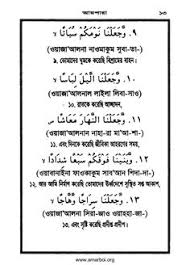 আমপারা ১৩
٩. وَّجَعَلْنَا نَوْمَكُمْ سُبَاتًا ۙ
(ওয়াজা'আলনা নাওমাকুম সুবা-তা-)
৯. তোমাদের ঘুমকে করেছি বিশ্রামের বাহন।
١٠. وَّجَعَلْنَا الَّيْلَ لِبَاسًا ۙ
(ওয়াজা'আলনাল লাইলা লিবা-সাও)
১০. রাতকে করেছি আচ্ছাদন,
١١. وَّجَعَلْنَا النَّهَارَ مَعَاشًا ۪
(ওয়াজা'আলনান নাহা-রা মা'আ-শা-)
১১. এবং দিনকে করেছি জীবিকা আহরণের সময়,
١٢. وَّبَنَيْنَا فَوْقَكُمْ سَبْعًا شِدَادًا ۙ
(ওয়াবানাইনা ফাওকাকুম সাব'আন শিদা-দা-)
১২. আর আমি নির্মাণ করেছি তোমাদের উর্ধ্বদেশে সুস্থিত সপ্ত আকাশ,
١٣. وَّجَعَلْنَا سِرَاجًا وَّهَّاجًا ۪
(ওয়াজা'আলনা সিরা-জাও ওয়াহহা-জা-)
১৩. এবং সৃষ্টি করেছি প্রদীপ্ত প্রদীপ।
www.amarboi.org